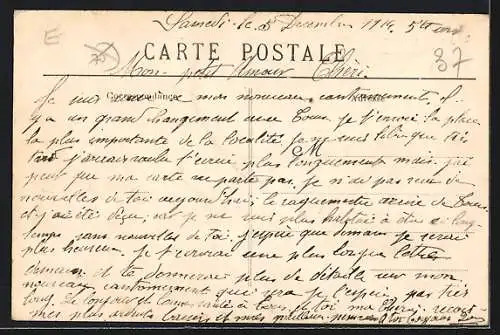 Samedi le 5 Decembre 1914. 5h
E
CARTE POSTALE
37
Mon petit Amour Chéri.
Correspondance
Je suis mon nouveau cantonnement, il
y a un grand changement avec Tours je t'envoi la place
la plus importante de la localité je ne suis libre que très
tard j'aurais voulu t'ecrire plus longuement mais j'ai
peur que ma carte ne parte pas. Je n'ai pas reçu de
nouvelles de toi aujourd'hui, le vaguemestre arrive de Tours
et j'ai été déçu, car je ne suis plus habitué à être si long-
temps sans nouvelles de toi. j'espère que demain je serai
plus heureux. Je t'ecrirai une plus longue lettre
demain et te donnerai plus de détails sur mon
nouveau cantonnement que je j'espère pas très
long. de toi ma Chérie, reçois
mes plus baisers et mes meilleurs